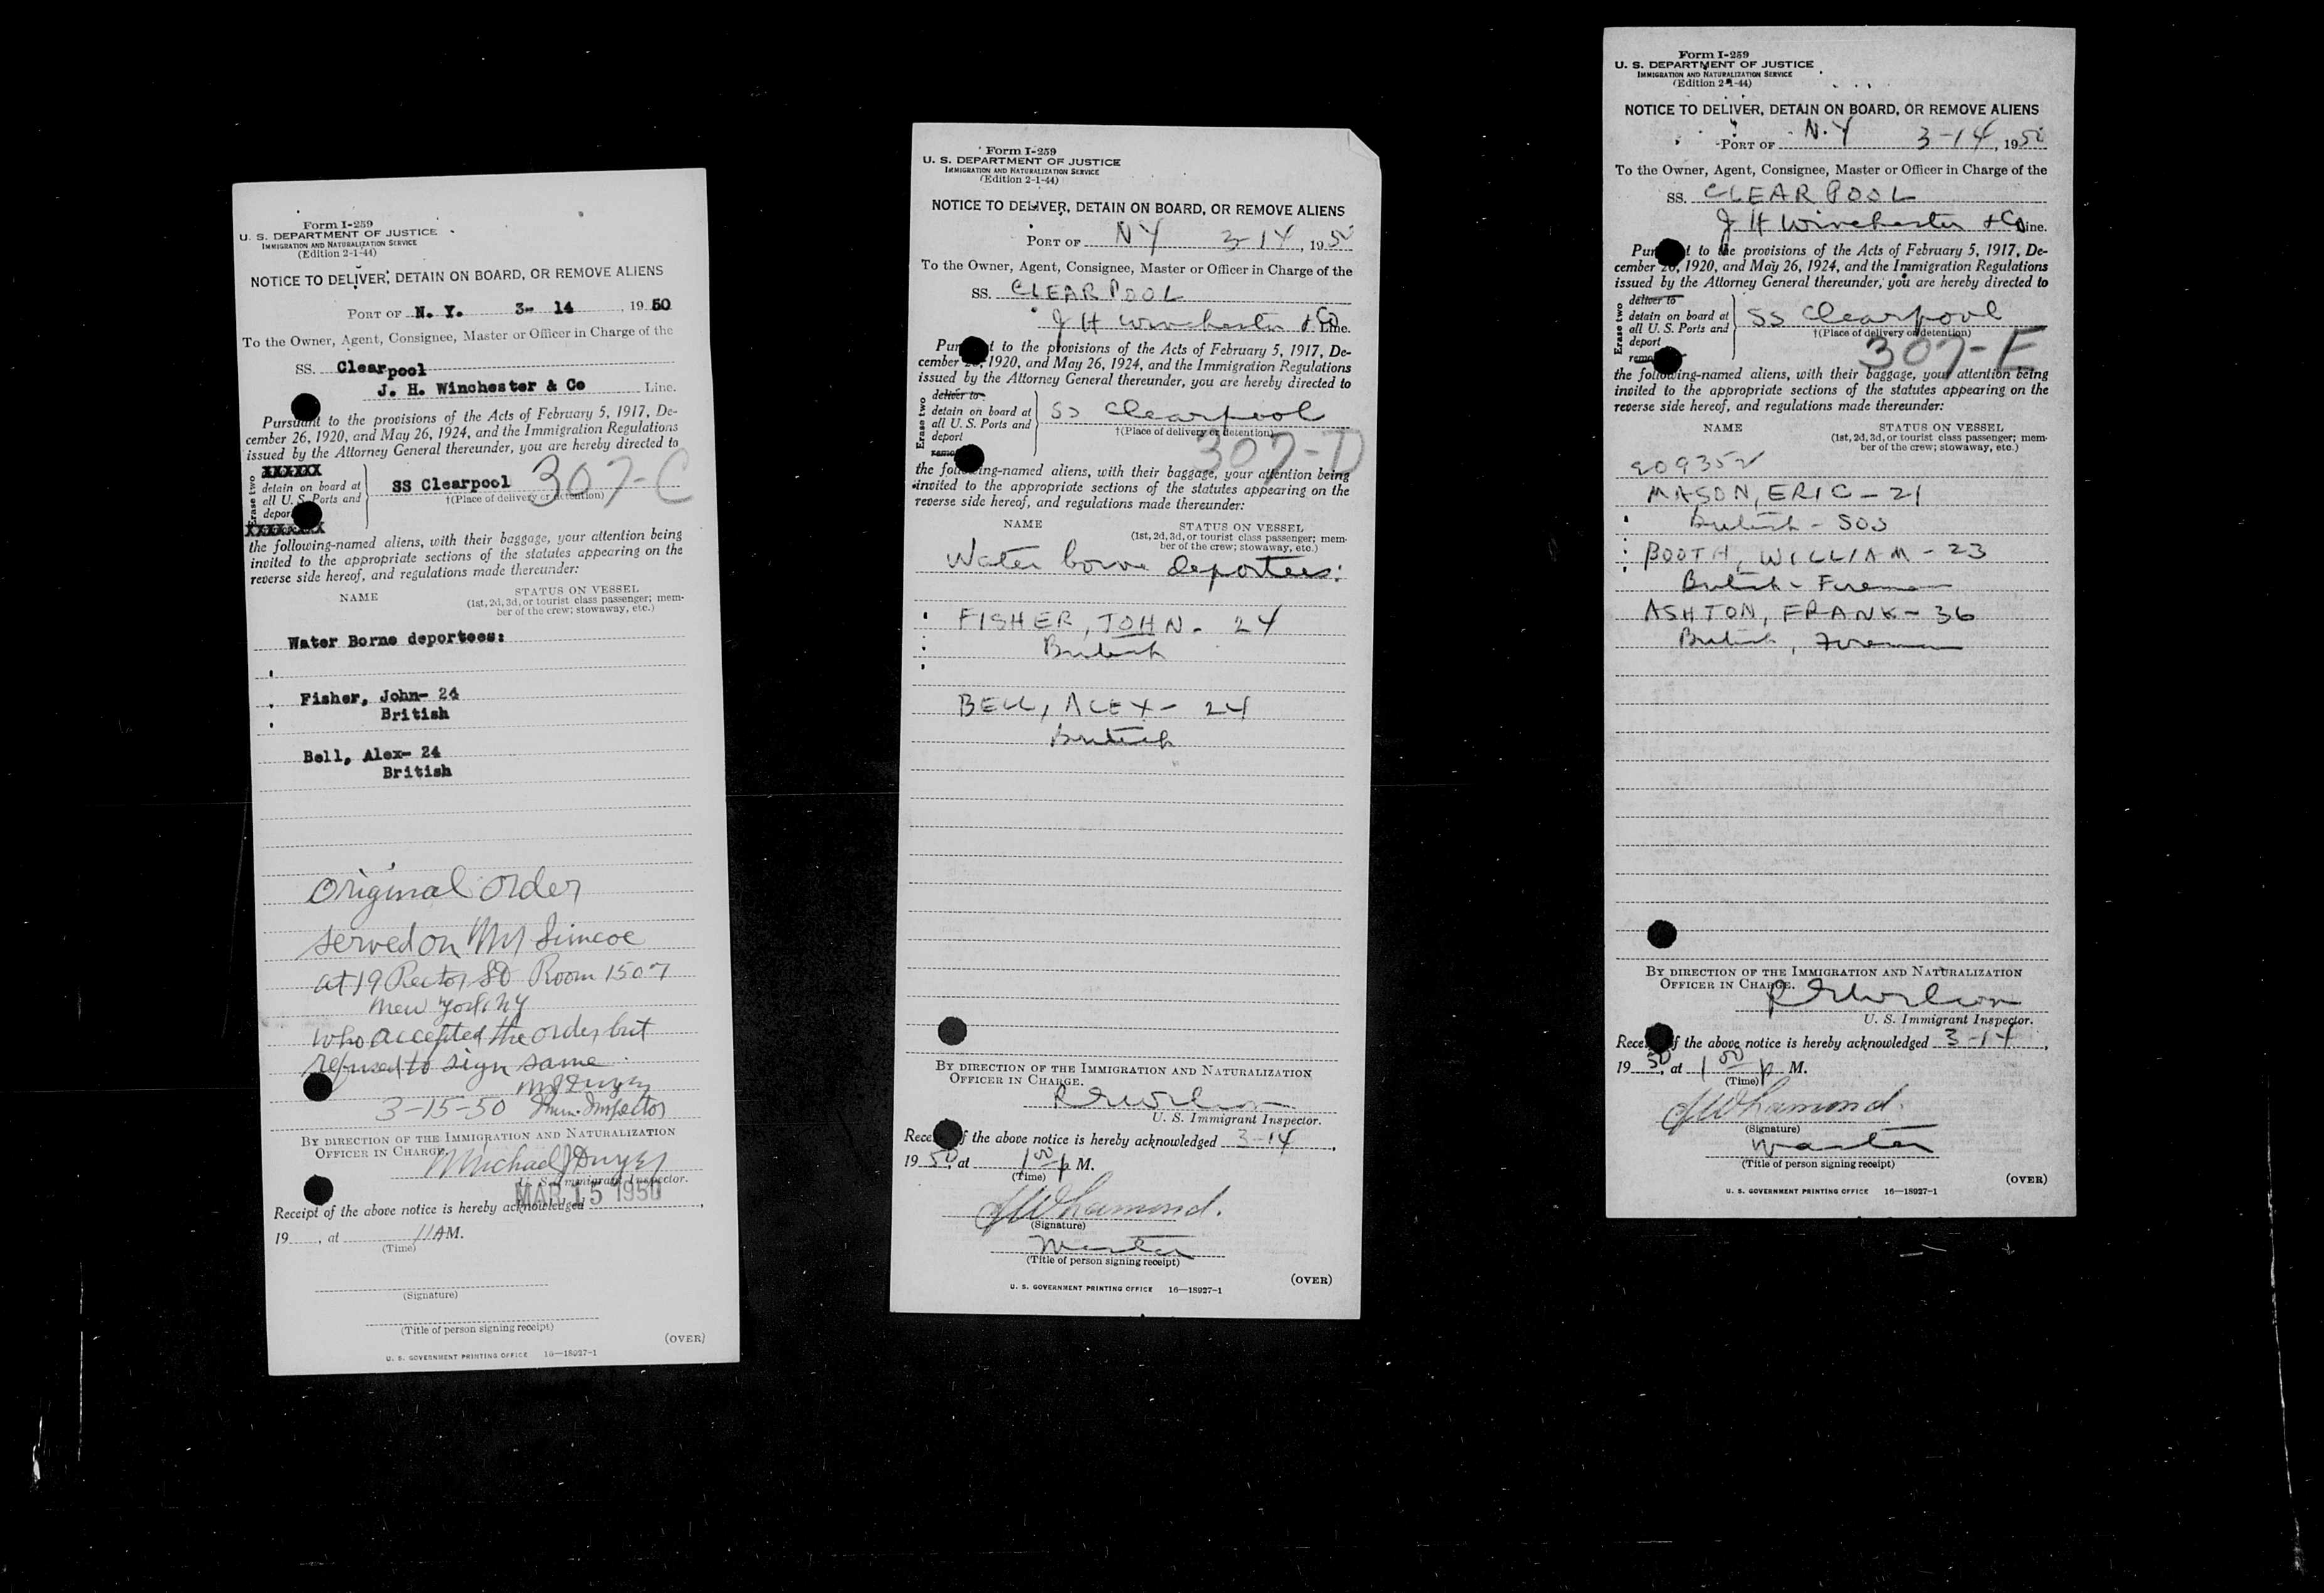 Form I-259
U. S. DEPARTMENT OF JUSTICE
IMMIGRATION AND NATURALIZATION SERVICE
(Edition 2-1-44)
NOTICE TO DELIVER, DETAIN ON BOARD, OR REMOVE ALIENS
PORT OF N. Y. 3- 14, 19 50
To the Owner, Agent, Consignee, Master or Officer in Charge of the
SS. Clearpool
J. H. Winchester & Co Line.
Pursuant to the provisions of the Acts of February 5, 1917, De-
cember 26, 1920, and May 26, 1924, and the Immigration Regulations
issued by the Attorney General thereunder, you are hereby directed to
Erase two
XXXXXX
detain on board at
all U. S. Ports and
deport
XXXXXXXX
SS Clearpool 307-C
†(Place of delivery or detention)
the following-named aliens, with their baggage, your attention being
invited to the appropriate sections of the statutes appearing on the
reverse side hereof, and regulations made thereunder:
NAME STATUS ON VESSEL
(1st, 2d, 3d, or tourist class passenger; mem-
ber of the crew; stowaway, etc.)
Water Borne deportees:
Fisher, John- 24
British
Bell, Alex- 24
British
Original order
served on Mr Simcoe
at 19 Rector St Room 1507
New York, NY
who accepted the order, but
refused to sign same
MJ Dwyer
3-15-50 Imm. Inspector
BY DIRECTION OF THE IMMIGRATION AND NATURALIZATION
OFFICER IN CHARGE.
Michael J Dwyer
U. S. Immigrant Inspector.
MAR 15 1950
Receipt of the above notice is hereby acknowledged
19 , at 11 A M.
(Time)
(Signature)
(Title of person signing receipt)
(OVER)
U. S. GOVERNMENT PRINTING OFFICE 16—18927-1
Form I-259
U. S. DEPARTMENT OF JUSTICE
IMMIGRATION AND NATURALIZATION SERVICE
(Edition 2-1-44)
NOTICE TO DELIVER, DETAIN ON BOARD, OR REMOVE ALIENS
PORT OF NY 3-14, 1950
To the Owner, Agent, Consignee, Master or Officer in Charge of the
SS. CLEARPOOL
J H Winchester & Co Line.
Pursuant to the provisions of the Acts of February 5, 1917, De-
cember 26, 1920, and May 26, 1924, and the Immigration Regulations
issued by the Attorney General thereunder, you are hereby directed to
Erase two
deliver to
detain on board at
all U. S. Ports and
deport
remove
SS Clearpool
†(Place of delivery or detention)
307-D
the following-named aliens, with their baggage, your attention being
invited to the appropriate sections of the statutes appearing on the
reverse side hereof, and regulations made thereunder:
NAME STATUS ON VESSEL
(1st, 2d, 3d, or tourist class passenger; mem-
ber of the crew; stowaway, etc.)
Water borne deportees:
FISHER, JOHN - 24
British
BELL, ALEX - 24
British
BY DIRECTION OF THE IMMIGRATION AND NATURALIZATION
OFFICER IN CHARGE.
U. S. Immigrant Inspector.
Receipt of the above notice is hereby acknowledged 3-14,
1950, at 1 00 p M.
(Time)
(Signature)
Master
(Title of person signing receipt)
(OVER)
U. S. GOVERNMENT PRINTING OFFICE 16—18927-1
Form I-259
U. S. DEPARTMENT OF JUSTICE
IMMIGRATION AND NATURALIZATION SERVICE
(Edition 2-1-44)
NOTICE TO DELIVER, DETAIN ON BOARD, OR REMOVE ALIENS
PORT OF N.Y 3-14, 1950
To the Owner, Agent, Consignee, Master or Officer in Charge of the
SS. CLEARPOOL
J H Winchester & Co Line.
Pursuant to the provisions of the Acts of February 5, 1917, De-
cember 26, 1920, and May 26, 1924, and the Immigration Regulations
issued by the Attorney General thereunder, you are hereby directed to
Erase two
deliver to
detain on board at
all U. S. Ports and
deport
remove
SS Clearpool
†(Place of delivery or detention)
307-E
the following-named aliens, with their baggage, your attention being
invited to the appropriate sections of the statutes appearing on the
reverse side hereof, and regulations made thereunder:
NAME STATUS ON VESSEL
(1st, 2d, 3d, or tourist class passenger; mem-
ber of the crew; stowaway, etc.)
209352
MASON, ERIC - 21
British - SOS
BOOTH, WILLIAM - 23
British - Fireman
ASHTON, FRANK - 36
British, Fireman
BY DIRECTION OF THE IMMIGRATION AND NATURALIZATION
OFFICER IN CHARGE.
U. S. Immigrant Inspector.
Receipt of the above notice is hereby acknowledged 3-14,
1950, at 1 00 p M.
(Time)
(Signature)
Master
(Title of person signing receipt)
(OVER)
U. S. GOVERNMENT PRINTING OFFICE 16—18927-1